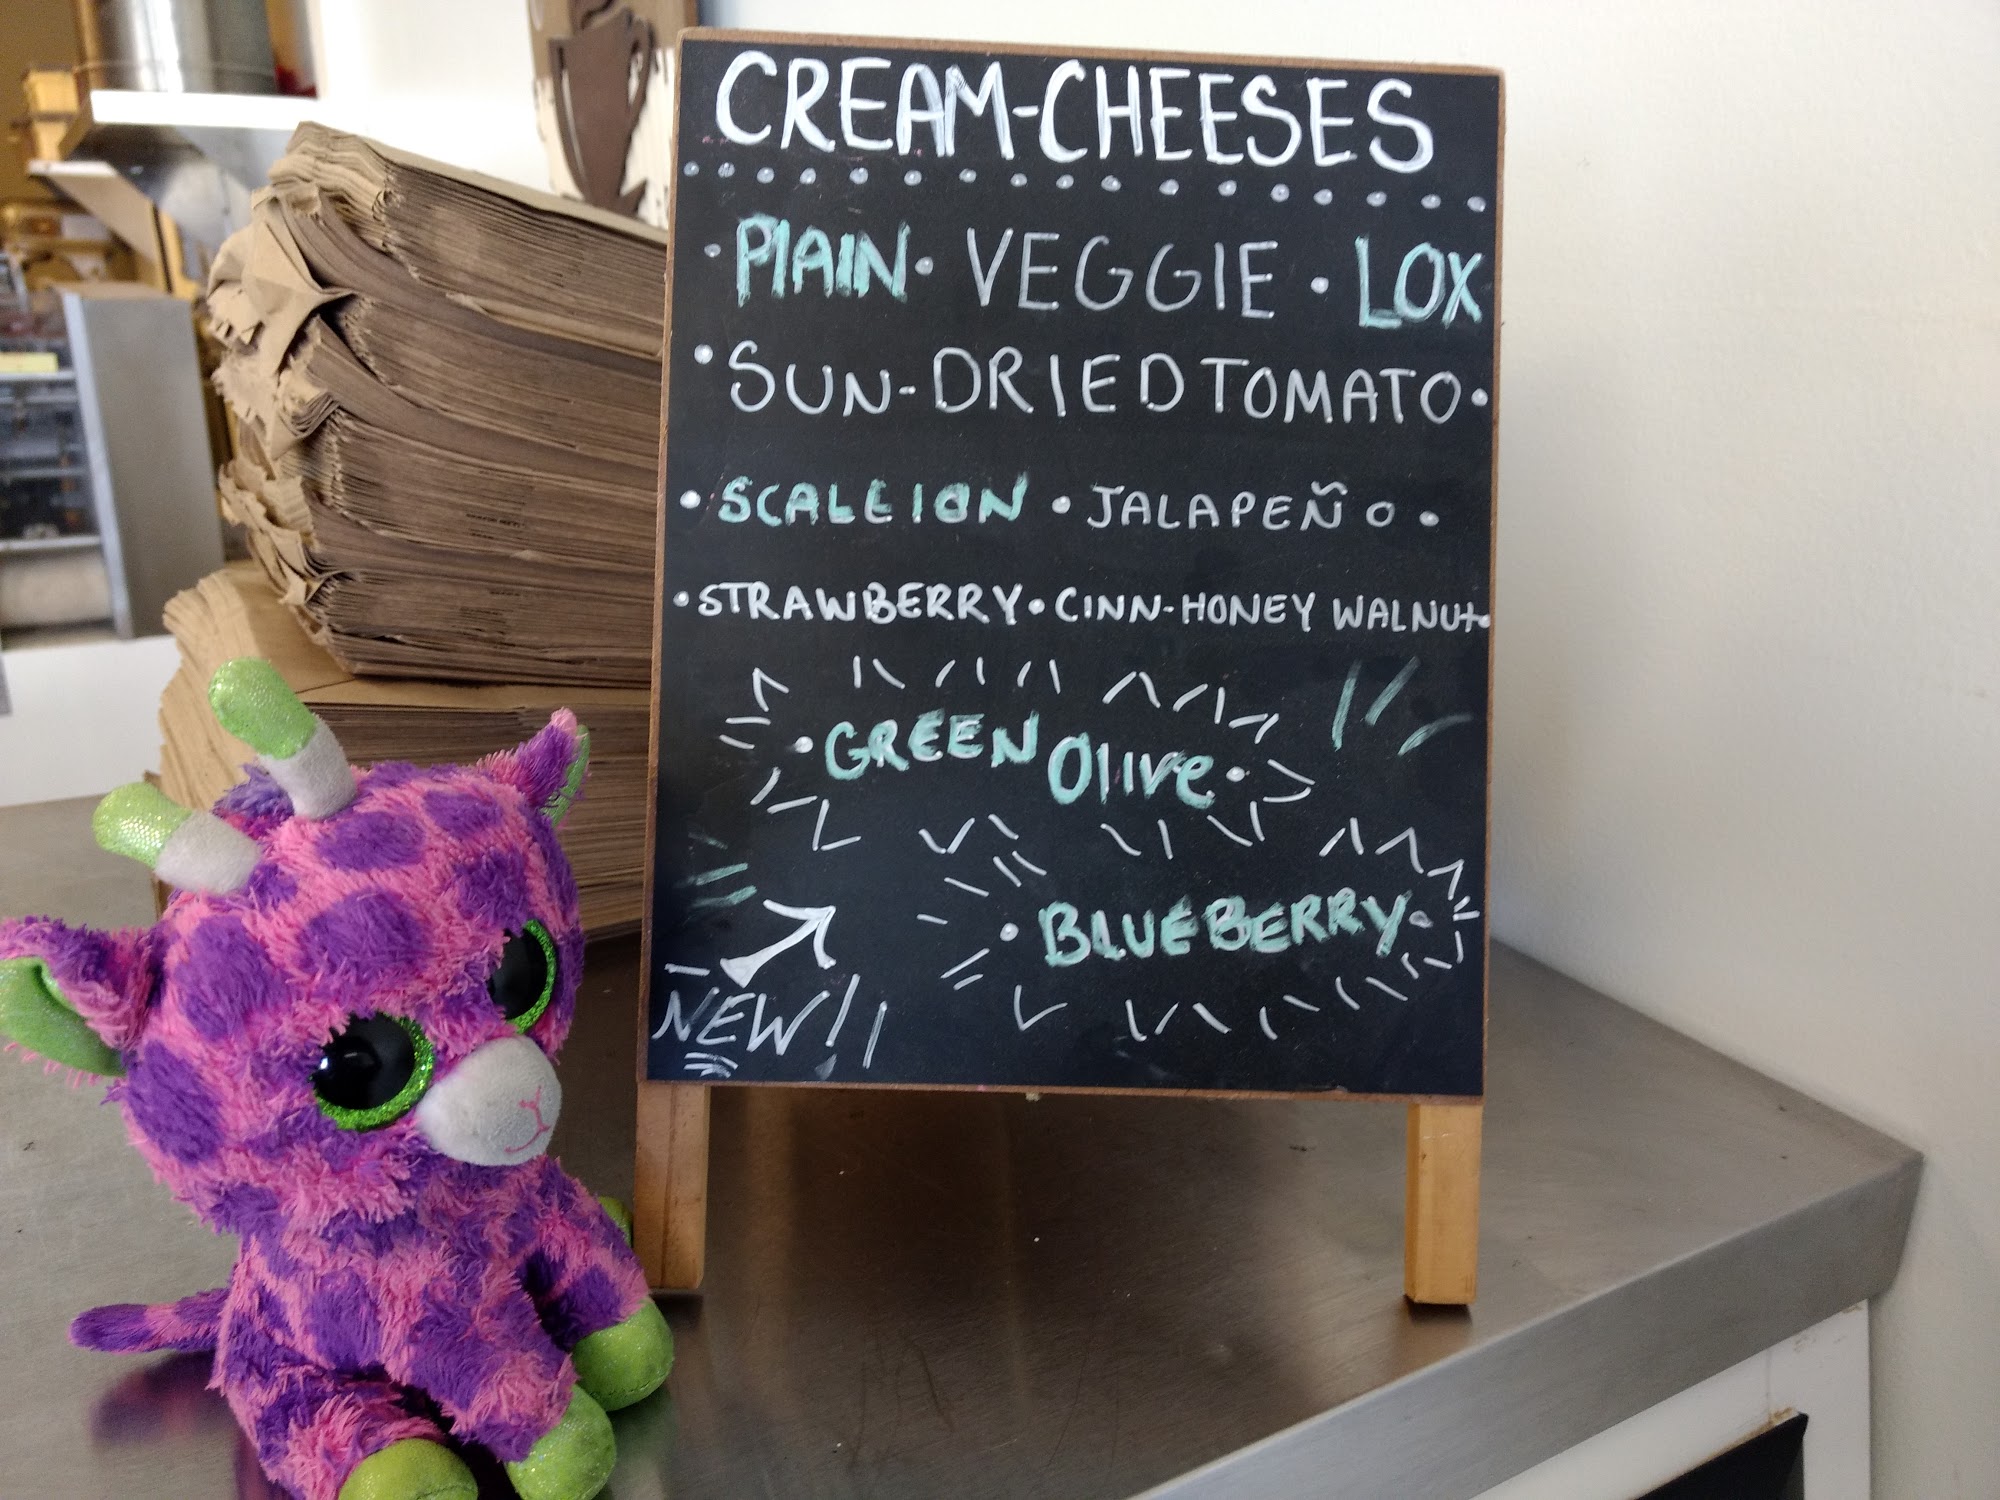 CREAM-CHEESES
• PlAIN • VEGGIE • LOX
• SUN-DRIED TOMATO •
• SCALLION • JALAPEÑO •
• STRAWBERRY • CINN-HONEY WALNUT •
• GREEN Olive •
• BLUEBERRY •
NEW!!